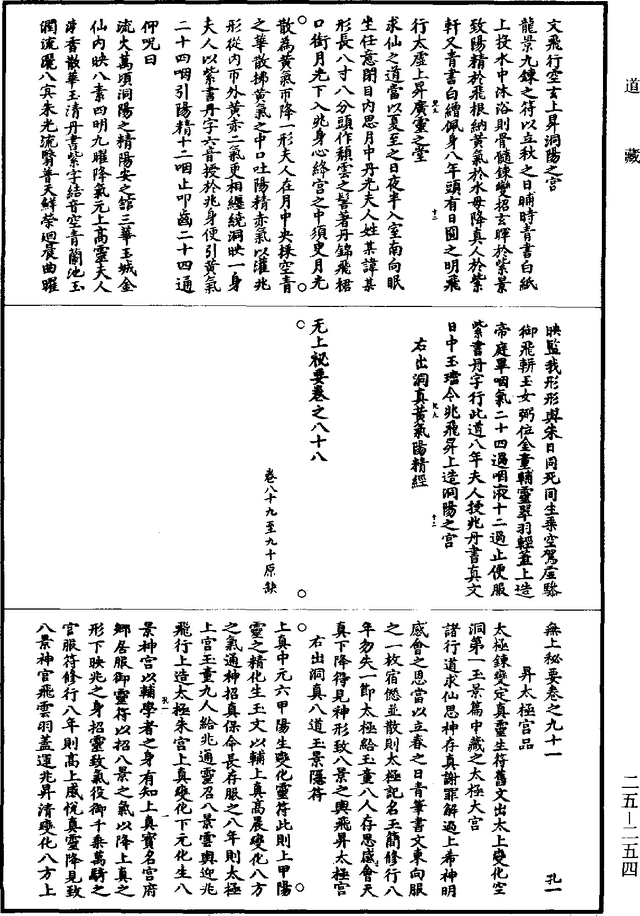 道藏
文飛行空玄上昇洞陽之宮
龍景九鍊之符以立秋之日晡時青書白紙
上投水中沐浴則骨髓鍊變招玄暉於紫景
致陽精於飛根納黃氣於水母降真人於紫
軒又青書白繒佩身八年頭有日圓之明飛
行太虛上昇廣靈之堂
求仙之道當以夏至之日夜半入室南向眠
坐任意閉目內思月中丹光夫人姓某諱某
形長八寸八分頭作頹雲之髻著丹錦飛裙
口銜月光下入兆身心絳宮之中須臾月光
散為黃氣帀降一形夫人在月中央採空青
之華散拂黃氣之中口吐陽精赤氣以灌兆
形從內帀外黃赤二氣更相纏繞洞映一身
夫人以紫書丹字六音授於兆身便引黃氣
二十四咽引陽精十二咽止叩齒二十四通
仰呪曰
流火萬頃洞陽之精陽安之館三華玉城金
仙內映八素四明九曜降氣元上高靈夫人
法香散華玉清丹書紫字結音空青蘭池玉
澗流曜八賓朱光流翳普天鮮榮迴晨曲曜
映監我形形與朱日同死同生乘空駕虛驂
御飛軿玉女弼位金童輔靈翠羽輕蓋上造
帝庭畢咽氣二十四過咽液十二過止便服
紫書丹字行此道八年夫人授兆丹書真文
日中玉璫令兆飛昇上造洞陽之宮
右出洞真黃氣陽精經
无上祕要卷之八十八
卷八十九至九十原缺
無上祕要卷之九十一
昇太極宮品
太極鍊變定真靈生符舊文出太上變化空
洞第一玉景篇中藏之太極大宮
諸行道求仙思神存真謝罪解過上希神明
感會之恩當以立春之日青筆書文東向服
之一枚宿愆並散則太極記名玉簡修行八
年勿失一節太極給玉童八人存思感會天
真下降得見神形致八景之輿飛昇太極宮
右出洞真八道玉景隱符
上真中元六甲陽生變化靈符此則上甲陽
靈之精化生玉文以輔上真高晨變化八方
之氣通神招真保命長存服之八年則太極
上宮玉童九人給兆通靈召八景雲輿迎兆
飛行上造太極朱宮上真變化下元化生八
景神宮以輔學者之身有知上真寶名宮府
鄉居服御靈符以招八景之氣以降上真之
形下映兆之身招靈致氣役御千乘萬騎之
官服符修行八年則高上感悅真靈降見致
八景神官飛雲羽蓋運兆昇清變化八方上
二五—二五四